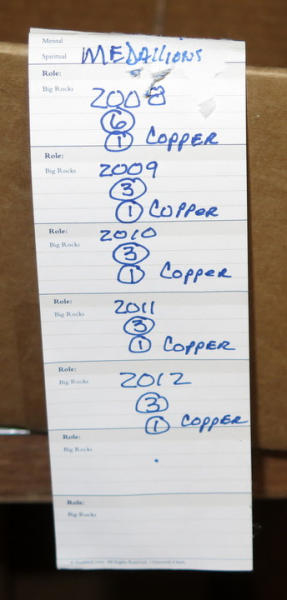 Mental
Spiritual MEDALLIONS
Role:
Big Rocks 2008
6
1 COPPER
Role:
Big Rocks 2009
3
1 COPPER
Role:
Big Rocks 2010
3
1 COPPER
Role:
Big Rocks 2011
3
1 COPPER
Role:
Big Rocks 2012
3
1 COPPER
Role:
Big Rocks
Role:
Big Rocks